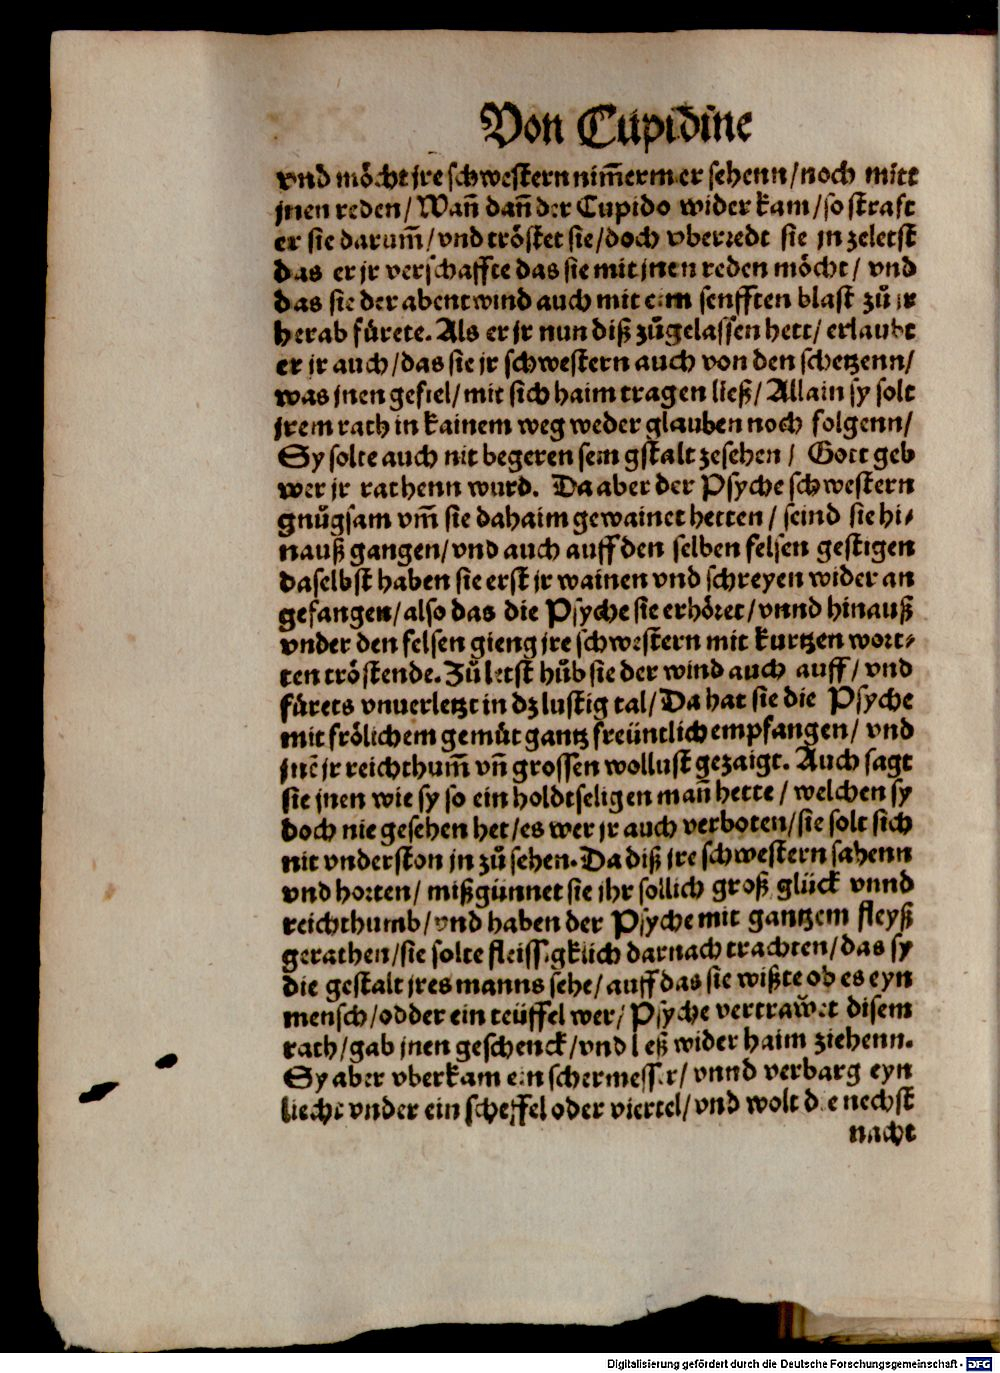 Von Cupidine
vnd möcht jre schwestern nim̃ermer sehenn/noch mitt
jnen reden/Wañ dañ der Cupido wider kam/so straft
er sie darum̃/vnd tröstet sie/doch vberredt sie jn zeletst
das er jr verschaffte das sie mit jnen reden möcht/ vnd
das sie der abentwind auch mit eim senfften blast zů jr
herab fürete. Als er jr nun diß zůgelassen hett/ erlaubt
er jr auch/das sie jr schwestern auch von den schetzenn/
was jnen gefiel/mit sich haim tragen ließ/Allain sy solt
jrem rath in kainem weg weder glauben noch folgenn/
Sy solte auch nit begeren sein gstalt zesehen/ Gott geb
wer jr rathenn wurd. Da aber der Psyche schwestern
gnůgsam vm̃ sie dahaim gewainet hetten/ seind sie hi-
nauß gangen/vnd auch auff den selben felsen gestigen
daselbst haben sie erst jr wainen vnd schreyen wider an
gefangen/also das die Psyche sie erhöret/vnnd hinauß
vnder den felsen gieng jre schwestern mit kurtzen wort-
ten tröstende. Zů letst hůb sie der wind auch auff/ vnd
fürets vnuerletzt in dz lustig tal/Da hat sie die Psyche
mit frölichem gemüt gantz freüntlich empfangen/ vnd
jnẽ jr reichthum̃ vñ grossen wollust gezaigt. Auch sagt
sie jnen wie sy so ein holdtseligen mañ hette/welchen sy
doch nie gesehen het/es wer jr auch verboten/sie solt sich
nit vnderston jn zů sehen. Da diß jre schwestern sahenn
vnd horten/ mißgünnet sie ihr sollich groß glück vnnd
reichthumb/vnd haben der Psyche mit gantzem fleyß
gerathen/sie solte fleissigklich darnach trachten/das sy
die gestalt jres manns sehe/auff das sie wißte ob es eyn
mensch/odder ein teüffel wer/Psyche vertrawet disem
rath/gab jnen geschenck/vnd ließ wider haim ziehenn.
Sy aber vberkam ein schermesser/vnnd verbarg eyn
liecht vnder ein scheffel oder viertel/vnd wolt die nechst
nacht
Digitalisierung gefördert durch die Deutsche Forschungsgemeinschaft - DFG